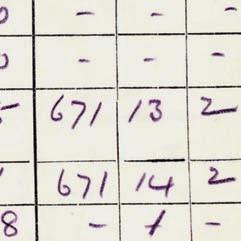 0 - - -
0 - - -
671 13 2
671 14 2
8 - 1 -